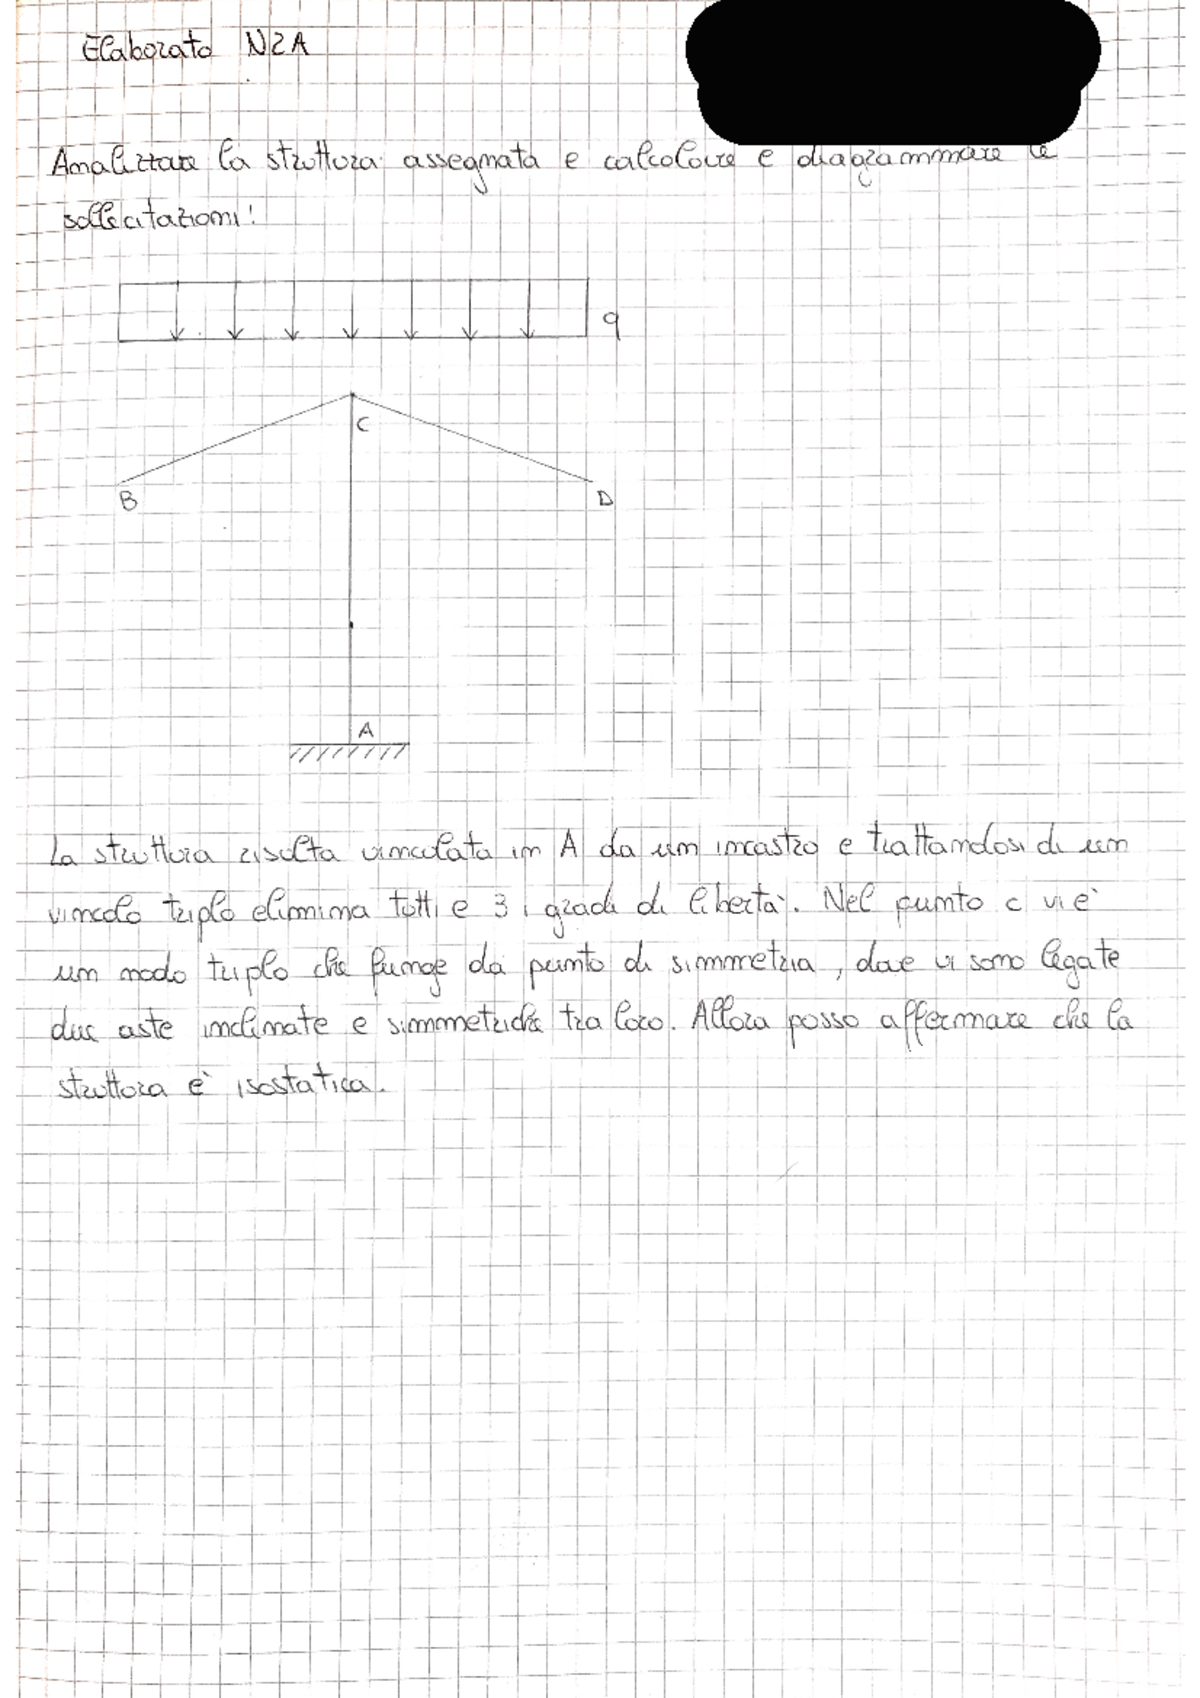 Elaborato N2A
Analizzare la struttura assegnata e calcolare e diagrammare le
sollecitazioni:
q
C
B
D
A
La struttura risulta vincolata in A da un incastro e trattandosi di un
vincolo triplo elimina tutti e 3 i gradi di libertà. Nel punto c vi è
un nodo triplo che funge da punto di simmetria, dove vi sono legate
due aste inclinate e simmetriche tra loro. Allora posso affermare che la
struttura è isostatica.